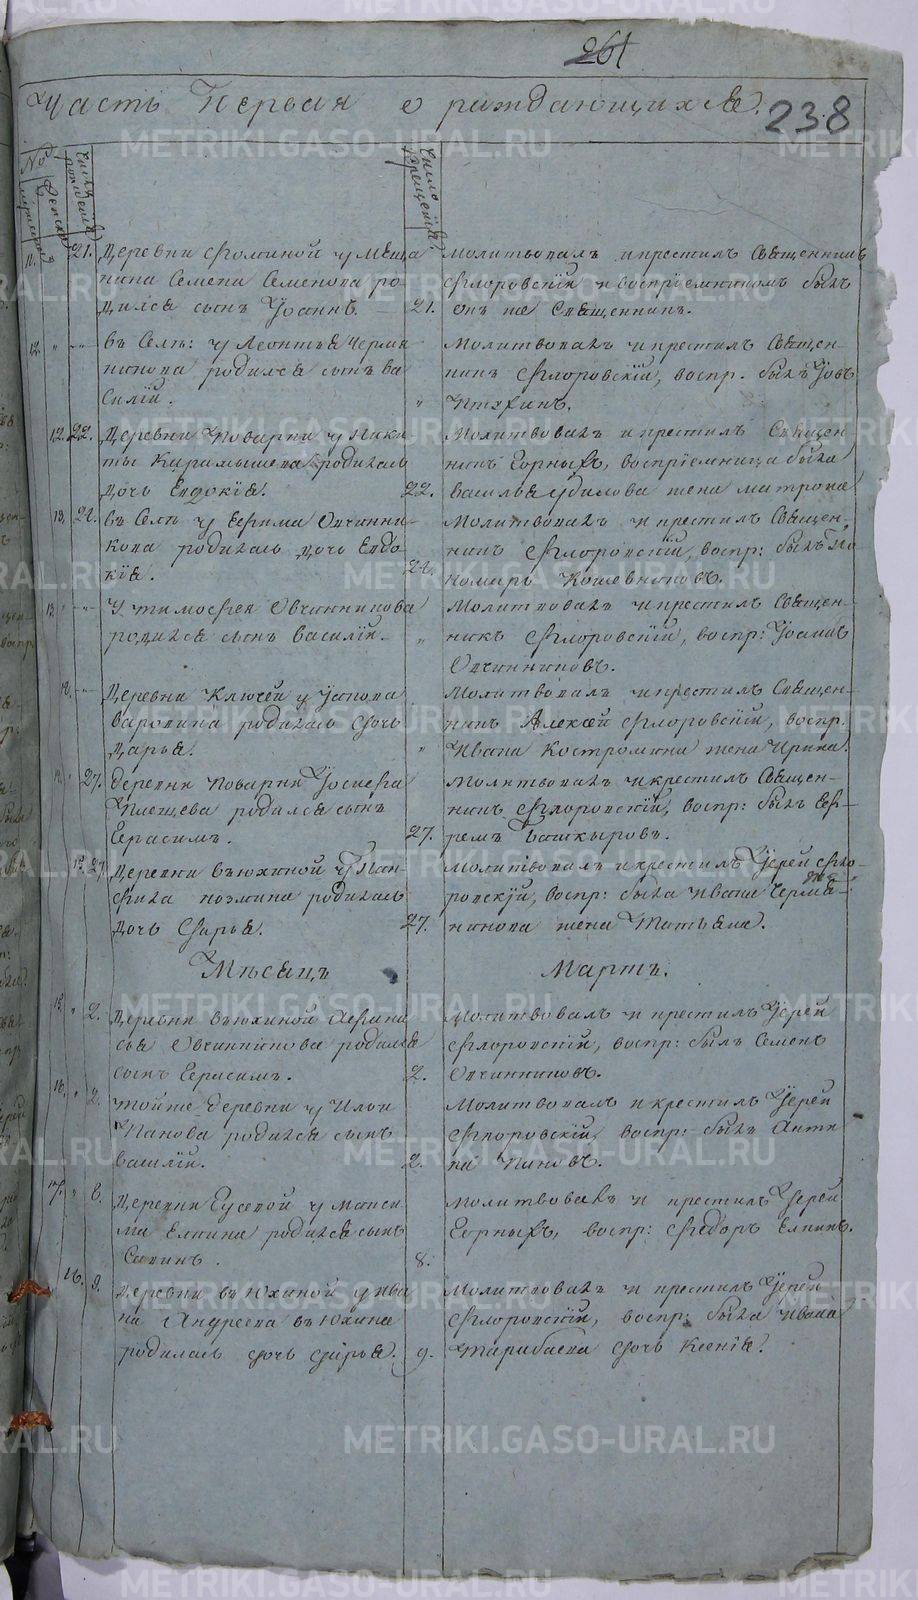 261
Часть Первая о раждающихся.
238
№
мужеска
женска
число рожденія
число крещенія
11. 21. Деревни Фоминой у Меща
нина Семена Семенова ро
дился сынъ Іоаннъ. 21.
Молитвовалъ и крестилъ Священникъ
Флоровскій и воспріемникомъ былъ
онъ же Священникъ.
12. " — въ Селѣ: у Леонтья Черма
никова родился сынъ Ва
силій. "
Молитвовалъ и крестилъ Священ-
никъ Флоровскій, воспр. былъ Іовъ
Птухинъ.
12. 22. Деревни Поварни у Ники
ты Карамышева родилась
дочь Евдокія. 22.
Молитвовалъ и крестилъ Священ
никъ Горныхъ, воспріемница была
Василья жена Матрона
13. 24. въ Селѣ у Ефима Овчинни-
кова родилась дочь Евдо-
кія. 24.
Молитвовалъ и крестилъ Священ-
никъ Флоровскій, воспр: былъ По
номарь Кошевниковъ.
13. " — У Тимофея Овчинникова
родился сынъ Василій. "
Молитвовалъ и крестилъ Священ-
никъ Флоровскій, воспр: Іоаннъ
Овчинниковъ.
— Деревни Ключей у
родилась дочь
Дарья. "
Молитвовалъ и крестилъ Священ-
никъ Алексѣй Флоровскій, воспр.
Ивана Костромина жена Ирина.
14. " 27. Деревни Поварни Іосифа
родился сынъ
Герасимъ. 27.
Молитвовалъ и крестилъ Священ-
никъ Флоровскій, воспр: былъ Еф-
ремъ Башкыровъ.
15. 27. Деревни Вьюхиной у Пан
фила родилась
дочь Дарья. 27.
Молитвовалъ и крестилъ Іерей Фло-
ровскій, воспр: была Ивана Черма-
никова жена Татьяна.
Мѣсяцъ Мартъ.
15. " 2. Деревни Вьюхиной Афана
сья Овчинникова родился
сынъ Герасимъ. 2.
Молитвовалъ и крестилъ Іерей
Флоровскій, воспр: былъ Семенъ
Овчинниковъ.
16. " 2. Тойже деревни у Ильи
Панова родился сынъ
Василій. 2.
Молитвовалъ и крестилъ Іерей
Флоровскій, воспр: былъ Анти
па Пановъ.
17. " 8. Деревни Гусевой у Макси
ма Елкина родился сынъ
Савинъ. 8.
Молитвовалъ и крестилъ Іерей
Горныхъ, воспр: Федоръ Елкинъ.
16. 9. Деревни Вьюхиной у Ива
на Андреева Вьюхина
родилась дочь Дарья. 9.
Молитвовалъ и крестилъ Іерей
Флоровскій, воспр: была Ивана
Тарабаева дочь Ксенія.
METRIKI.GASO-URAL.RU